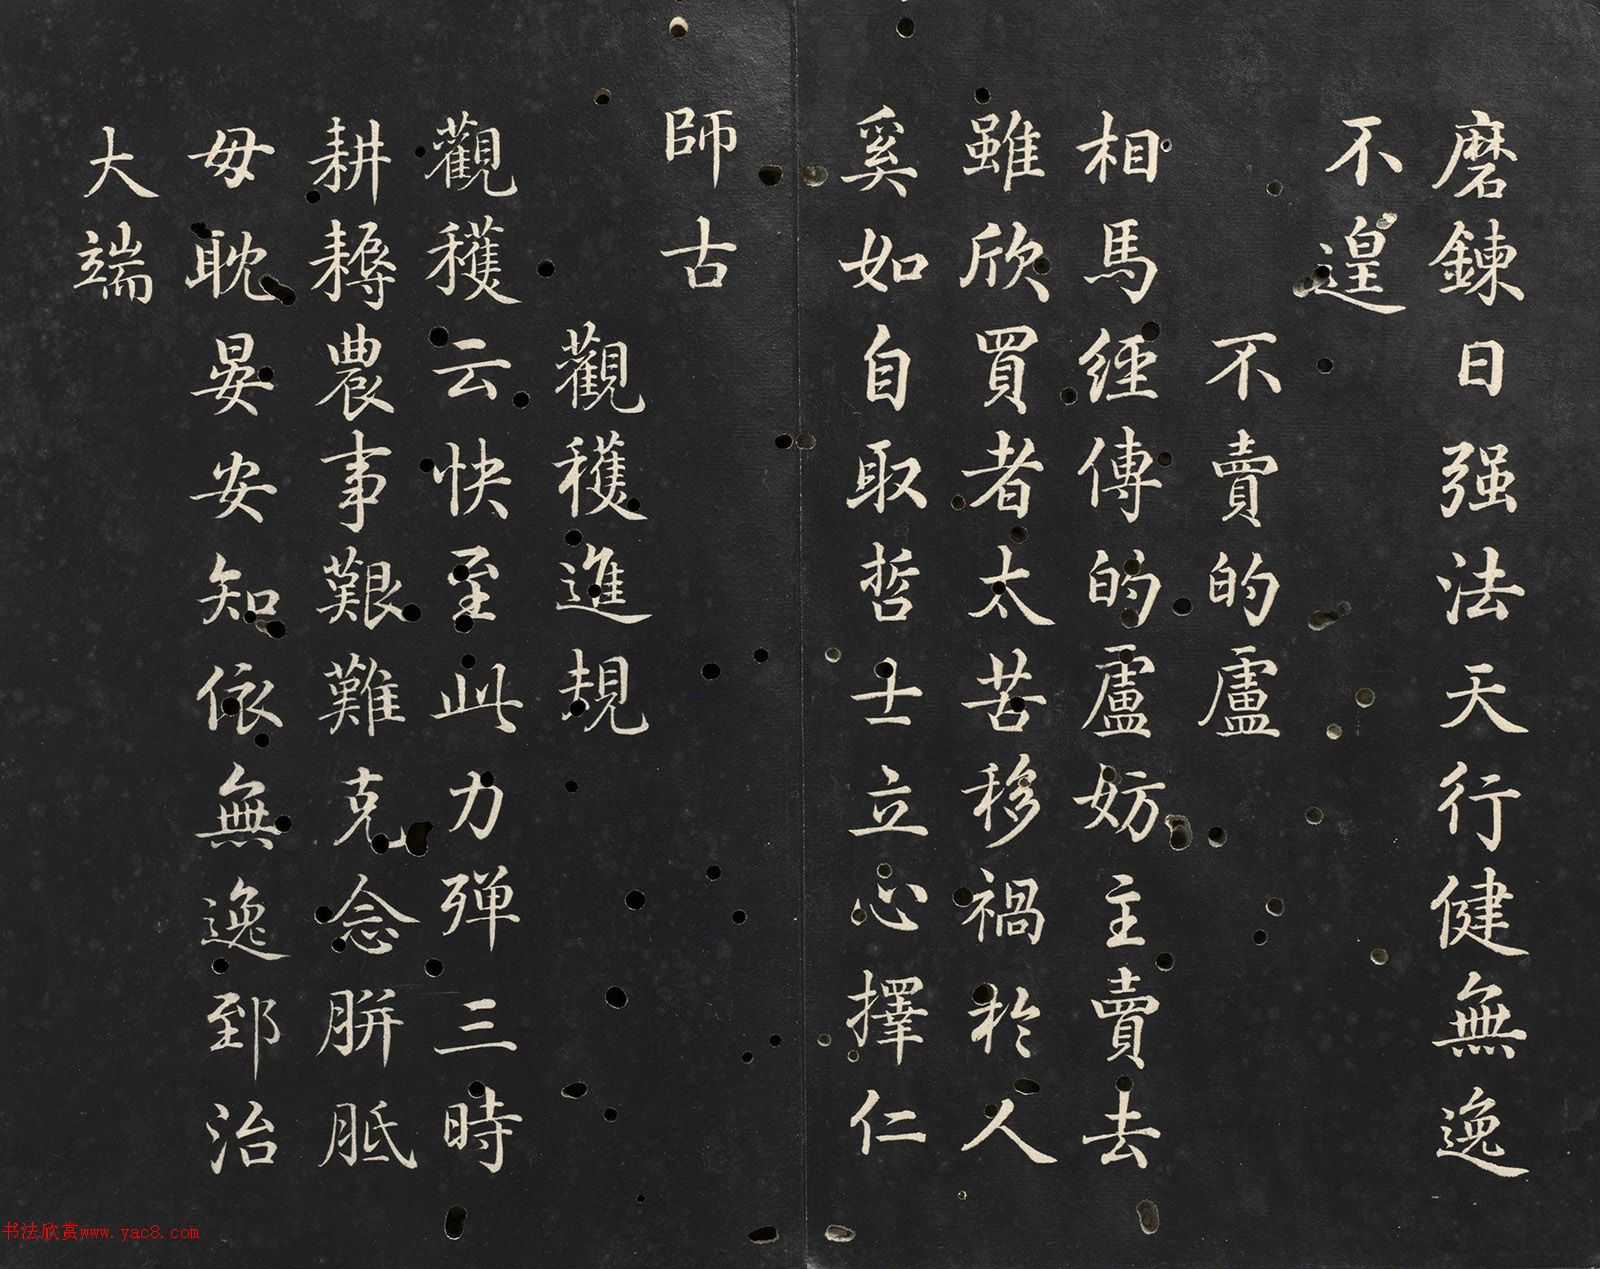 磨鍊日强法天行健無逸
不遑
不賣的盧
相馬經傳的盧妨主賣去
雖欣買者太苦移禍於人
奚如自取哲士立心擇仁
師古
觀穫進規
觀穫云快至此力殫三時
耕耨農事艱難克念胼胝
毋耽晏安知依無逸郅治
大端
书法欣赏www.yac8.com